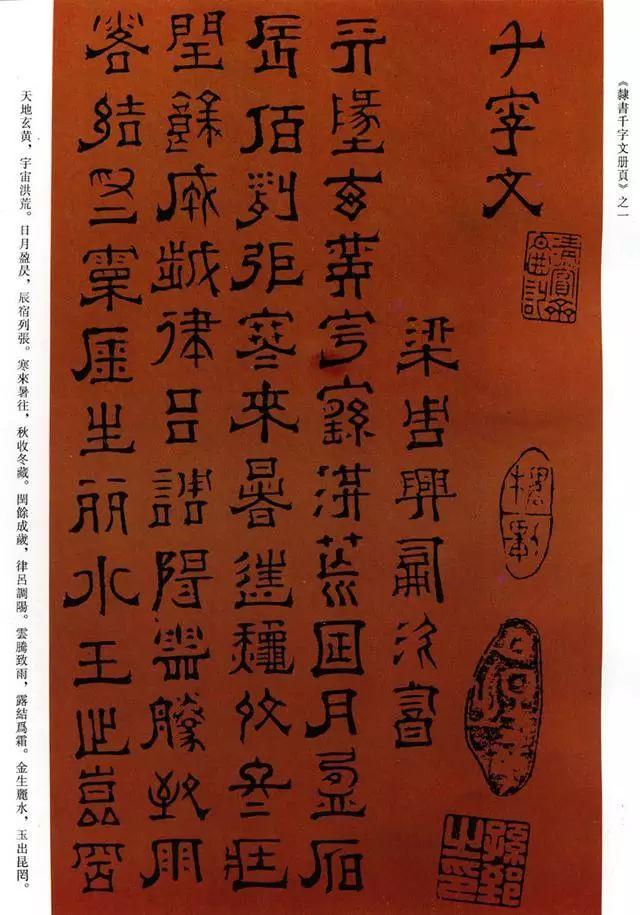 《隸書千字文册頁》之一
千字文
梁周興嗣次
天地玄黄宇宙洪荒日月盈昃
辰宿列張寒來暑往秋收冬藏
閏餘成歲律吕調陽雲騰致雨
露結爲霜金生麗水玉出崑岡
天地玄黃，宇宙洪荒。日月盈昃，辰宿列張。寒來暑往，秋收冬藏。閏餘成歲，律呂調陽。雲騰致雨，露結爲霜。金生麗水，玉出昆岡。